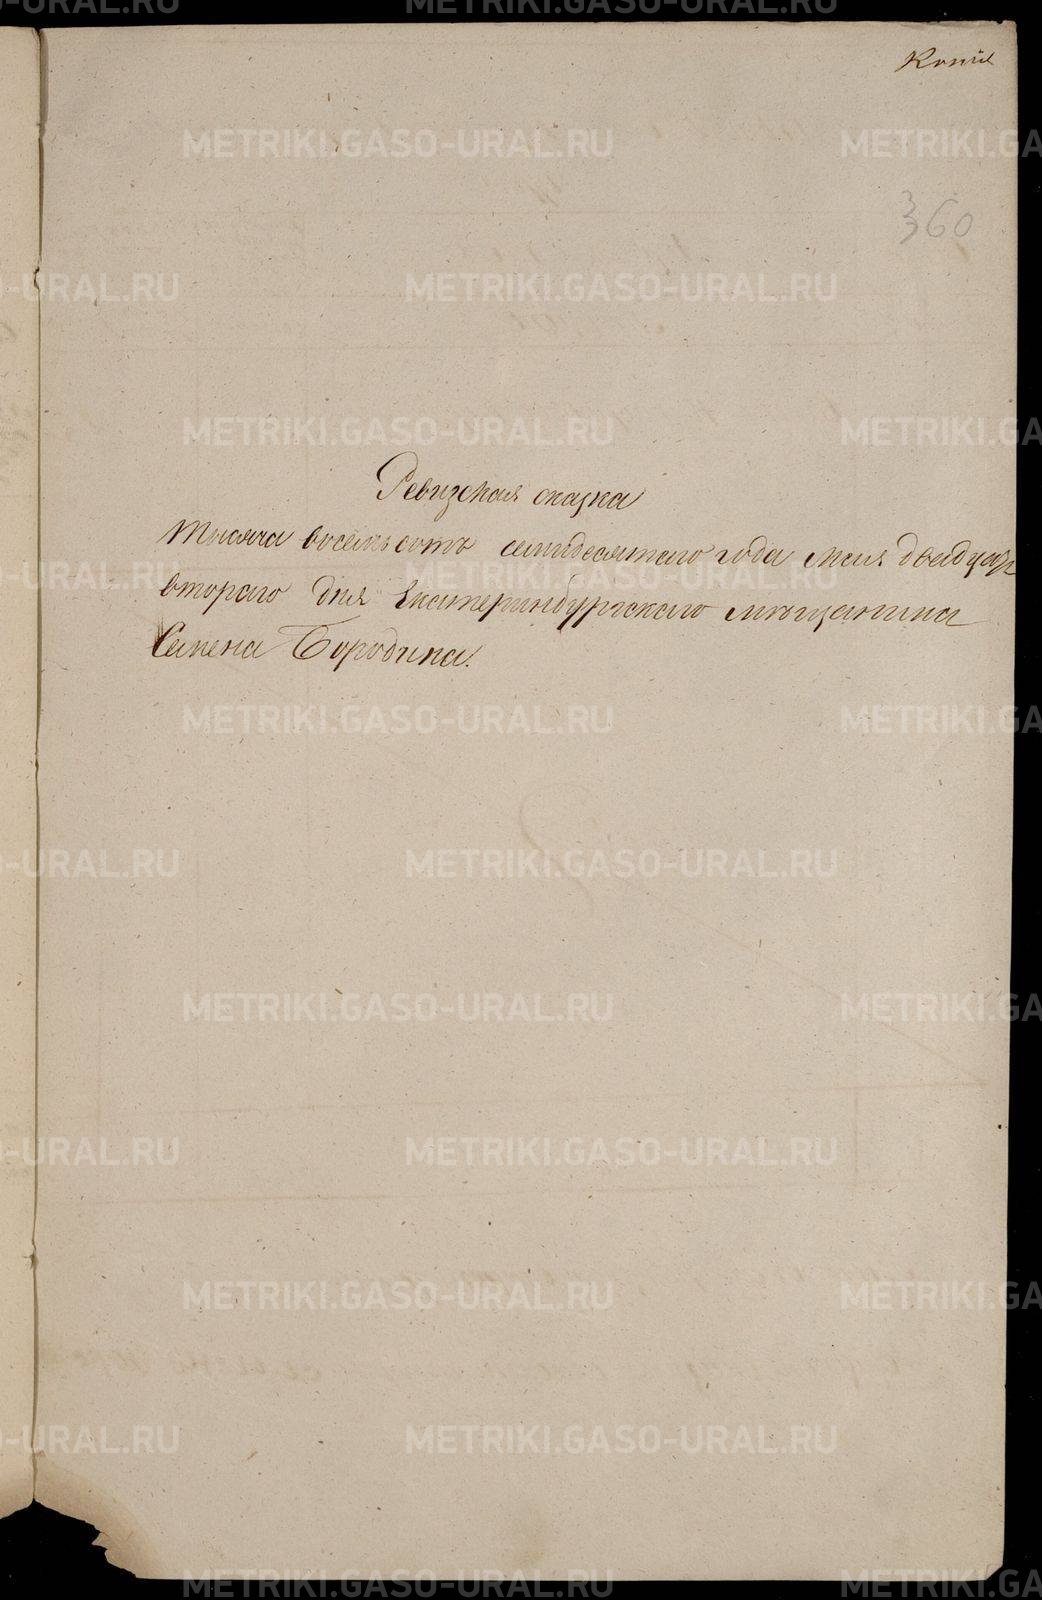 Копія
360
Ревизская сказка
Тысяча восемьсотъ семидесятаго года Мая двадцать
втораго дня Екатеринбургскаго мѣщанина
Семена Бородина.
METRIKI.GASO-URAL.RU